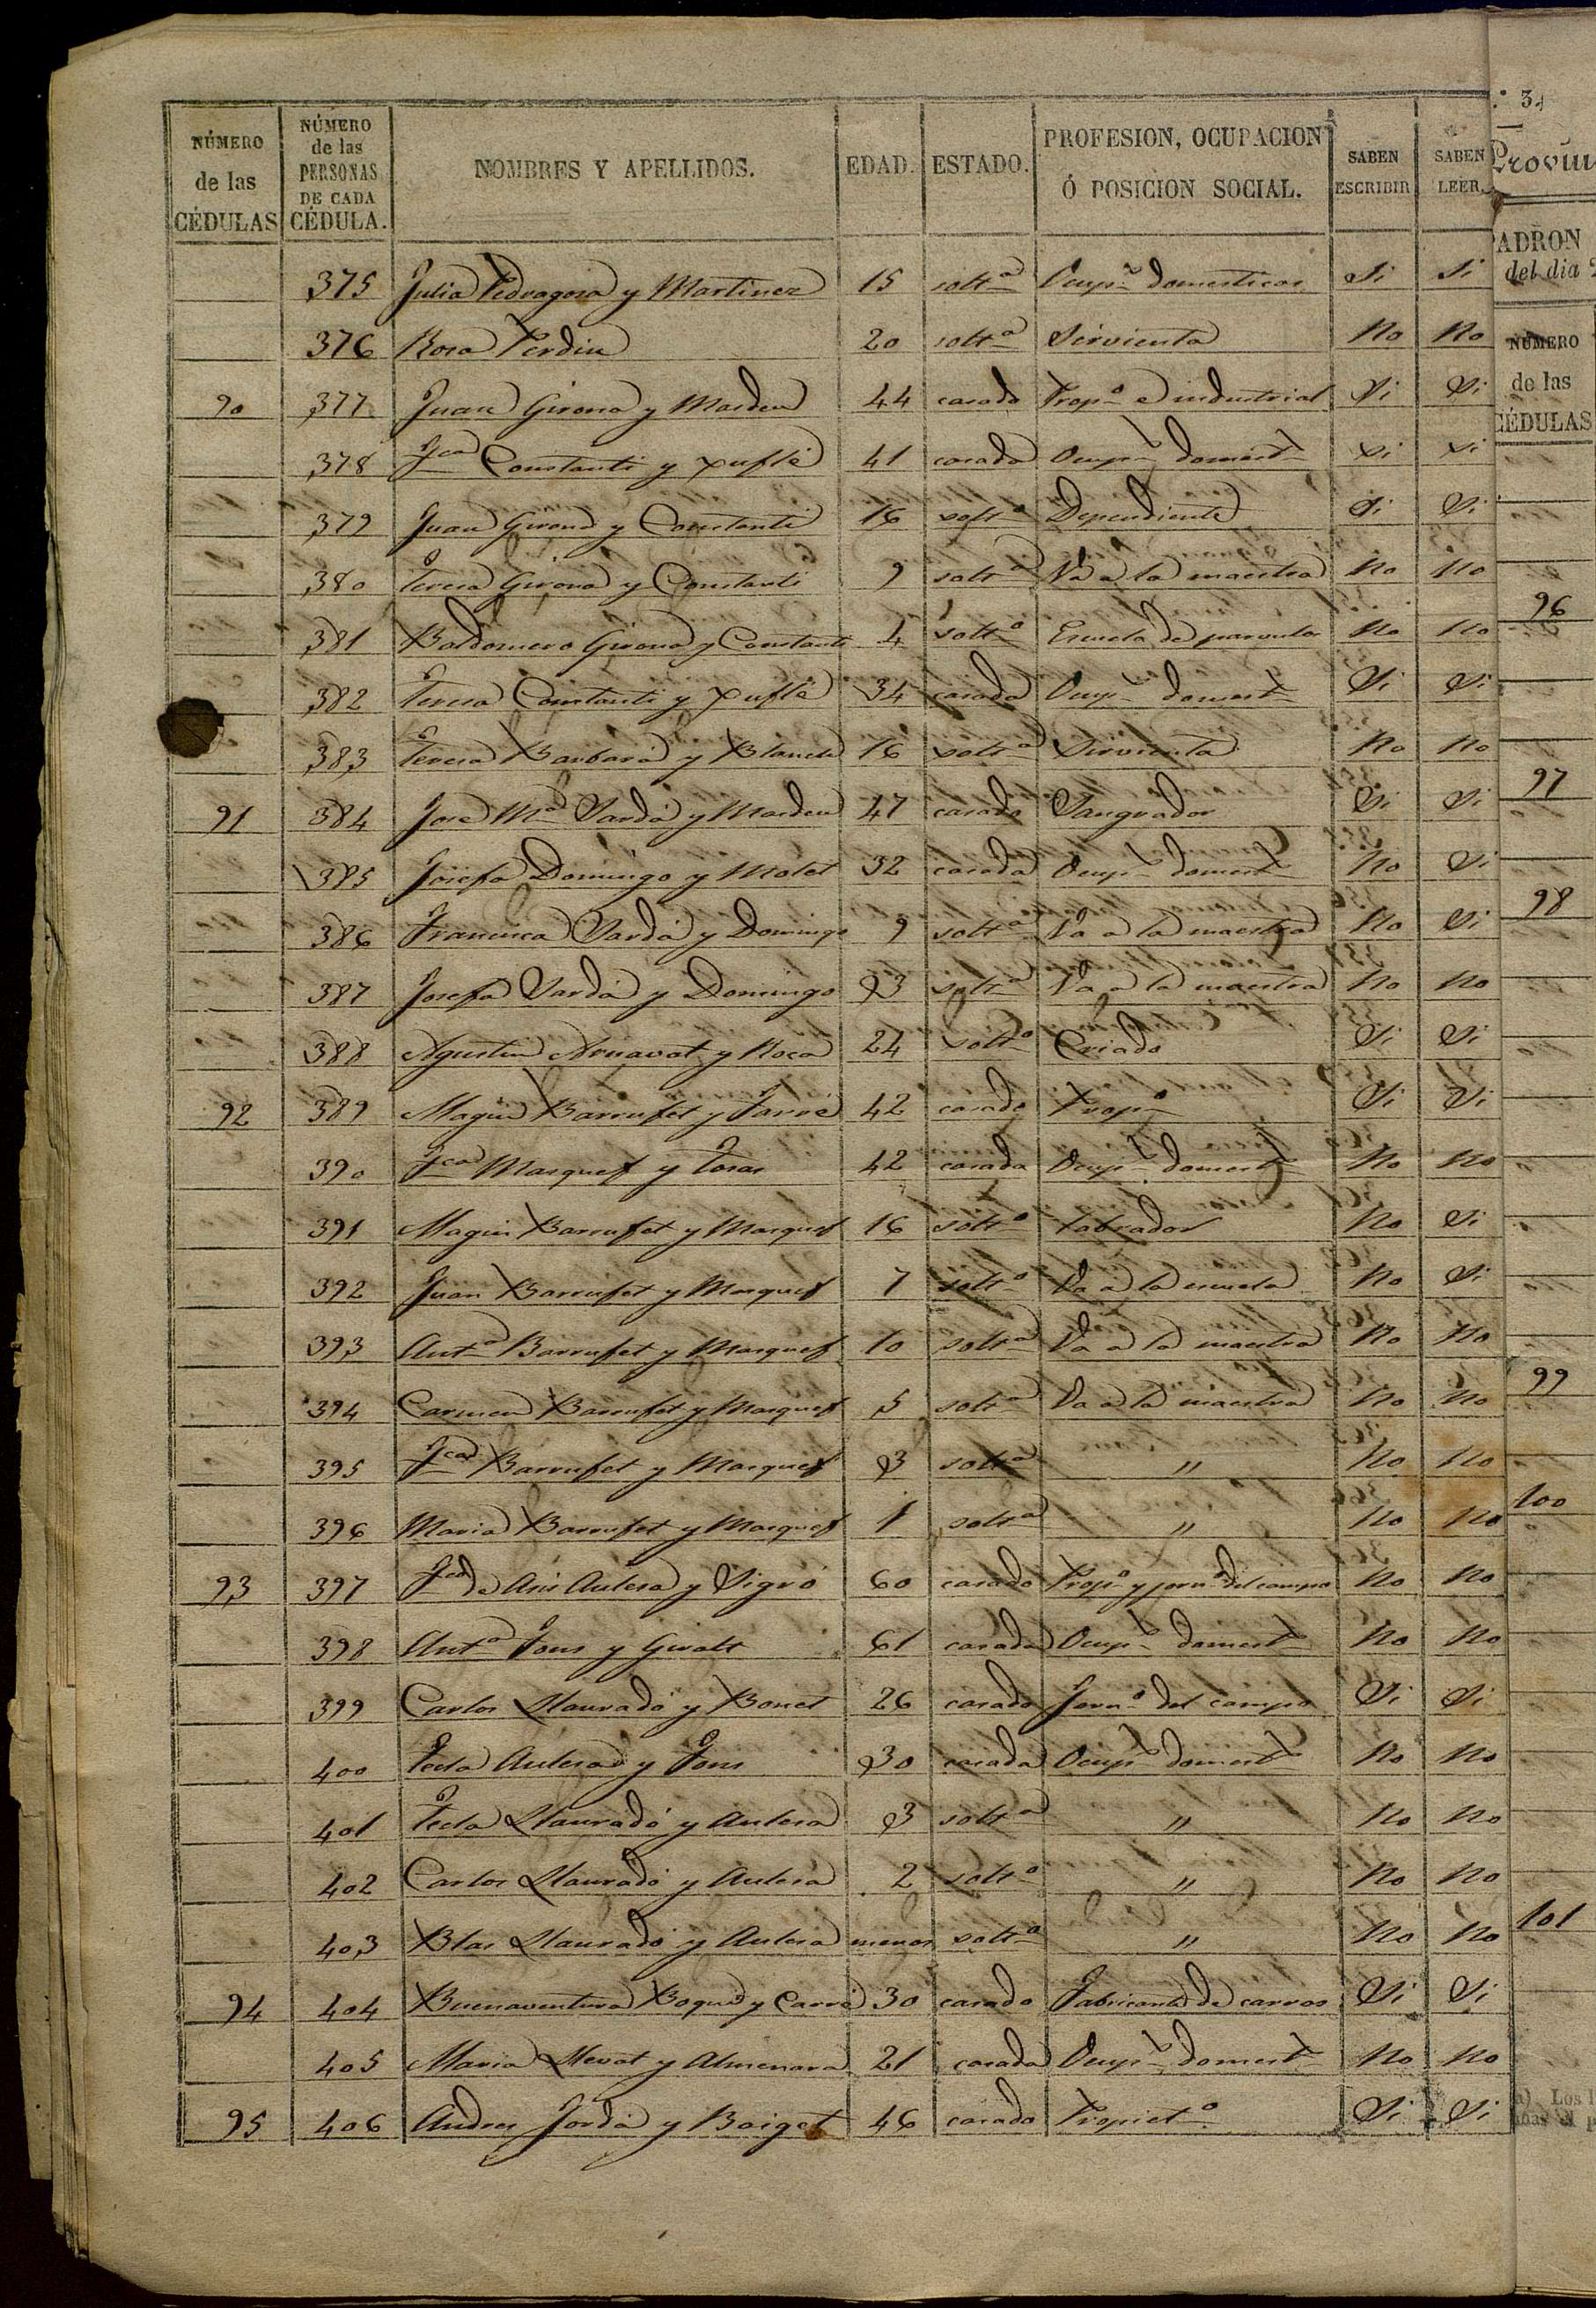 NÚMERO de las CÉDULAS NÚMERO de las PERSONAS DE CADA CÉDULA. NOMBRES Y APELLIDOS. EDAD. ESTADO. PROFESION, OCUPACION Ó POSICION SOCIAL. SABEN ESCRIBIR SABEN LEER.
375 Julia Pedragosa y Martinez 15 solt.a Ocup.s domesticas Si Si
376 Rosa Perdiu 20 solt.a Sirvienta No No
90 377 Juan Girona y Masdeu 44 casado Prop.o e industrial Si Si
378 Fca Constanti y Xuflé 41 casada Ocup.s domest.s Si Si
379 Juan Girona y Constanti 16 solt.o Dependiente Si Si
380 Teresa Girona y Constanti 9 solt.a Va a la maestra No No
381 Baldomero Girona y Constanti 4 solt.o Escuela de parvulos No No
382 Teresa Constanti y Xuflé 34 casada Ocup.s domest.s Si Si
383 Teresa Barbará y Blanch 16 solt.a Sirvienta No No
91 384 José M.a Sardá y Masdeu 47 casado Sangrador Si Si
385 Josefa Domingo y Molet 32 casada Ocup.s domest.s No Si
386 Francisca Sardá y Domingo 9 solt.a Va a la maestra No Si
387 Josefa Sardá y Domingo 3 solt.a Va a la maestra No No
388 Agustin Arnavat y Roca 24 solt.o Criado Si Si
92 389 Magin Barrufet y Farré 42 casado Prop.o Si Si
390 Fca Marquef y 42 casada Ocup.s domest.s No No
391 Magin Barrufet y Marquef 16 solt.o Labrador No Si
392 Juan Barrufet y Marquef 7 solt.o Va a la escuela No Si
393 Ant.a Barrufet y Marquef 10 solt.a Va a la maestra No No
394 Carmen Barrufet y Marquef 5 solt.a Va a la maestra No No
395 Fca Barrufet y Marquef 3 solt.a " No No
396 Maria Barrufet y Marquef 1 solt.a " No No
93 397 Fco de Asis Aulesa y Sigró 60 casado Prop.o y jorn.o del campo No No
398 Ant.a Fons y Giralt 61 casada Ocup.s domest.s No No
399 Carlos Llauradó y Bonet 26 casado Jorn.o del campo Si Si
400 Tecla Aulesa y Fons 30 casada Ocup.s domest.s No No
401 Tecla Llauradó y Aulesa 3 solt.a " No No
402 Carlos Llauradó y Aulesa 2 solt.o " No No
403 Blas Llauradó y Aulesa menor solt.o " No No
94 404 Buenaventura Boqué y Carré 30 casado Fabricante de carros Si Si
405 Maria Llevat y Almenara 21 casada Ocup.s domest.s No No
95 406 Andres Jordá y Boiget 46 casado Propiet.o Si Si
3.
Provin
PADRON
del dia 2
NÚMERO
de las
CÉDULAS
96
97
98
99
100
101
Los